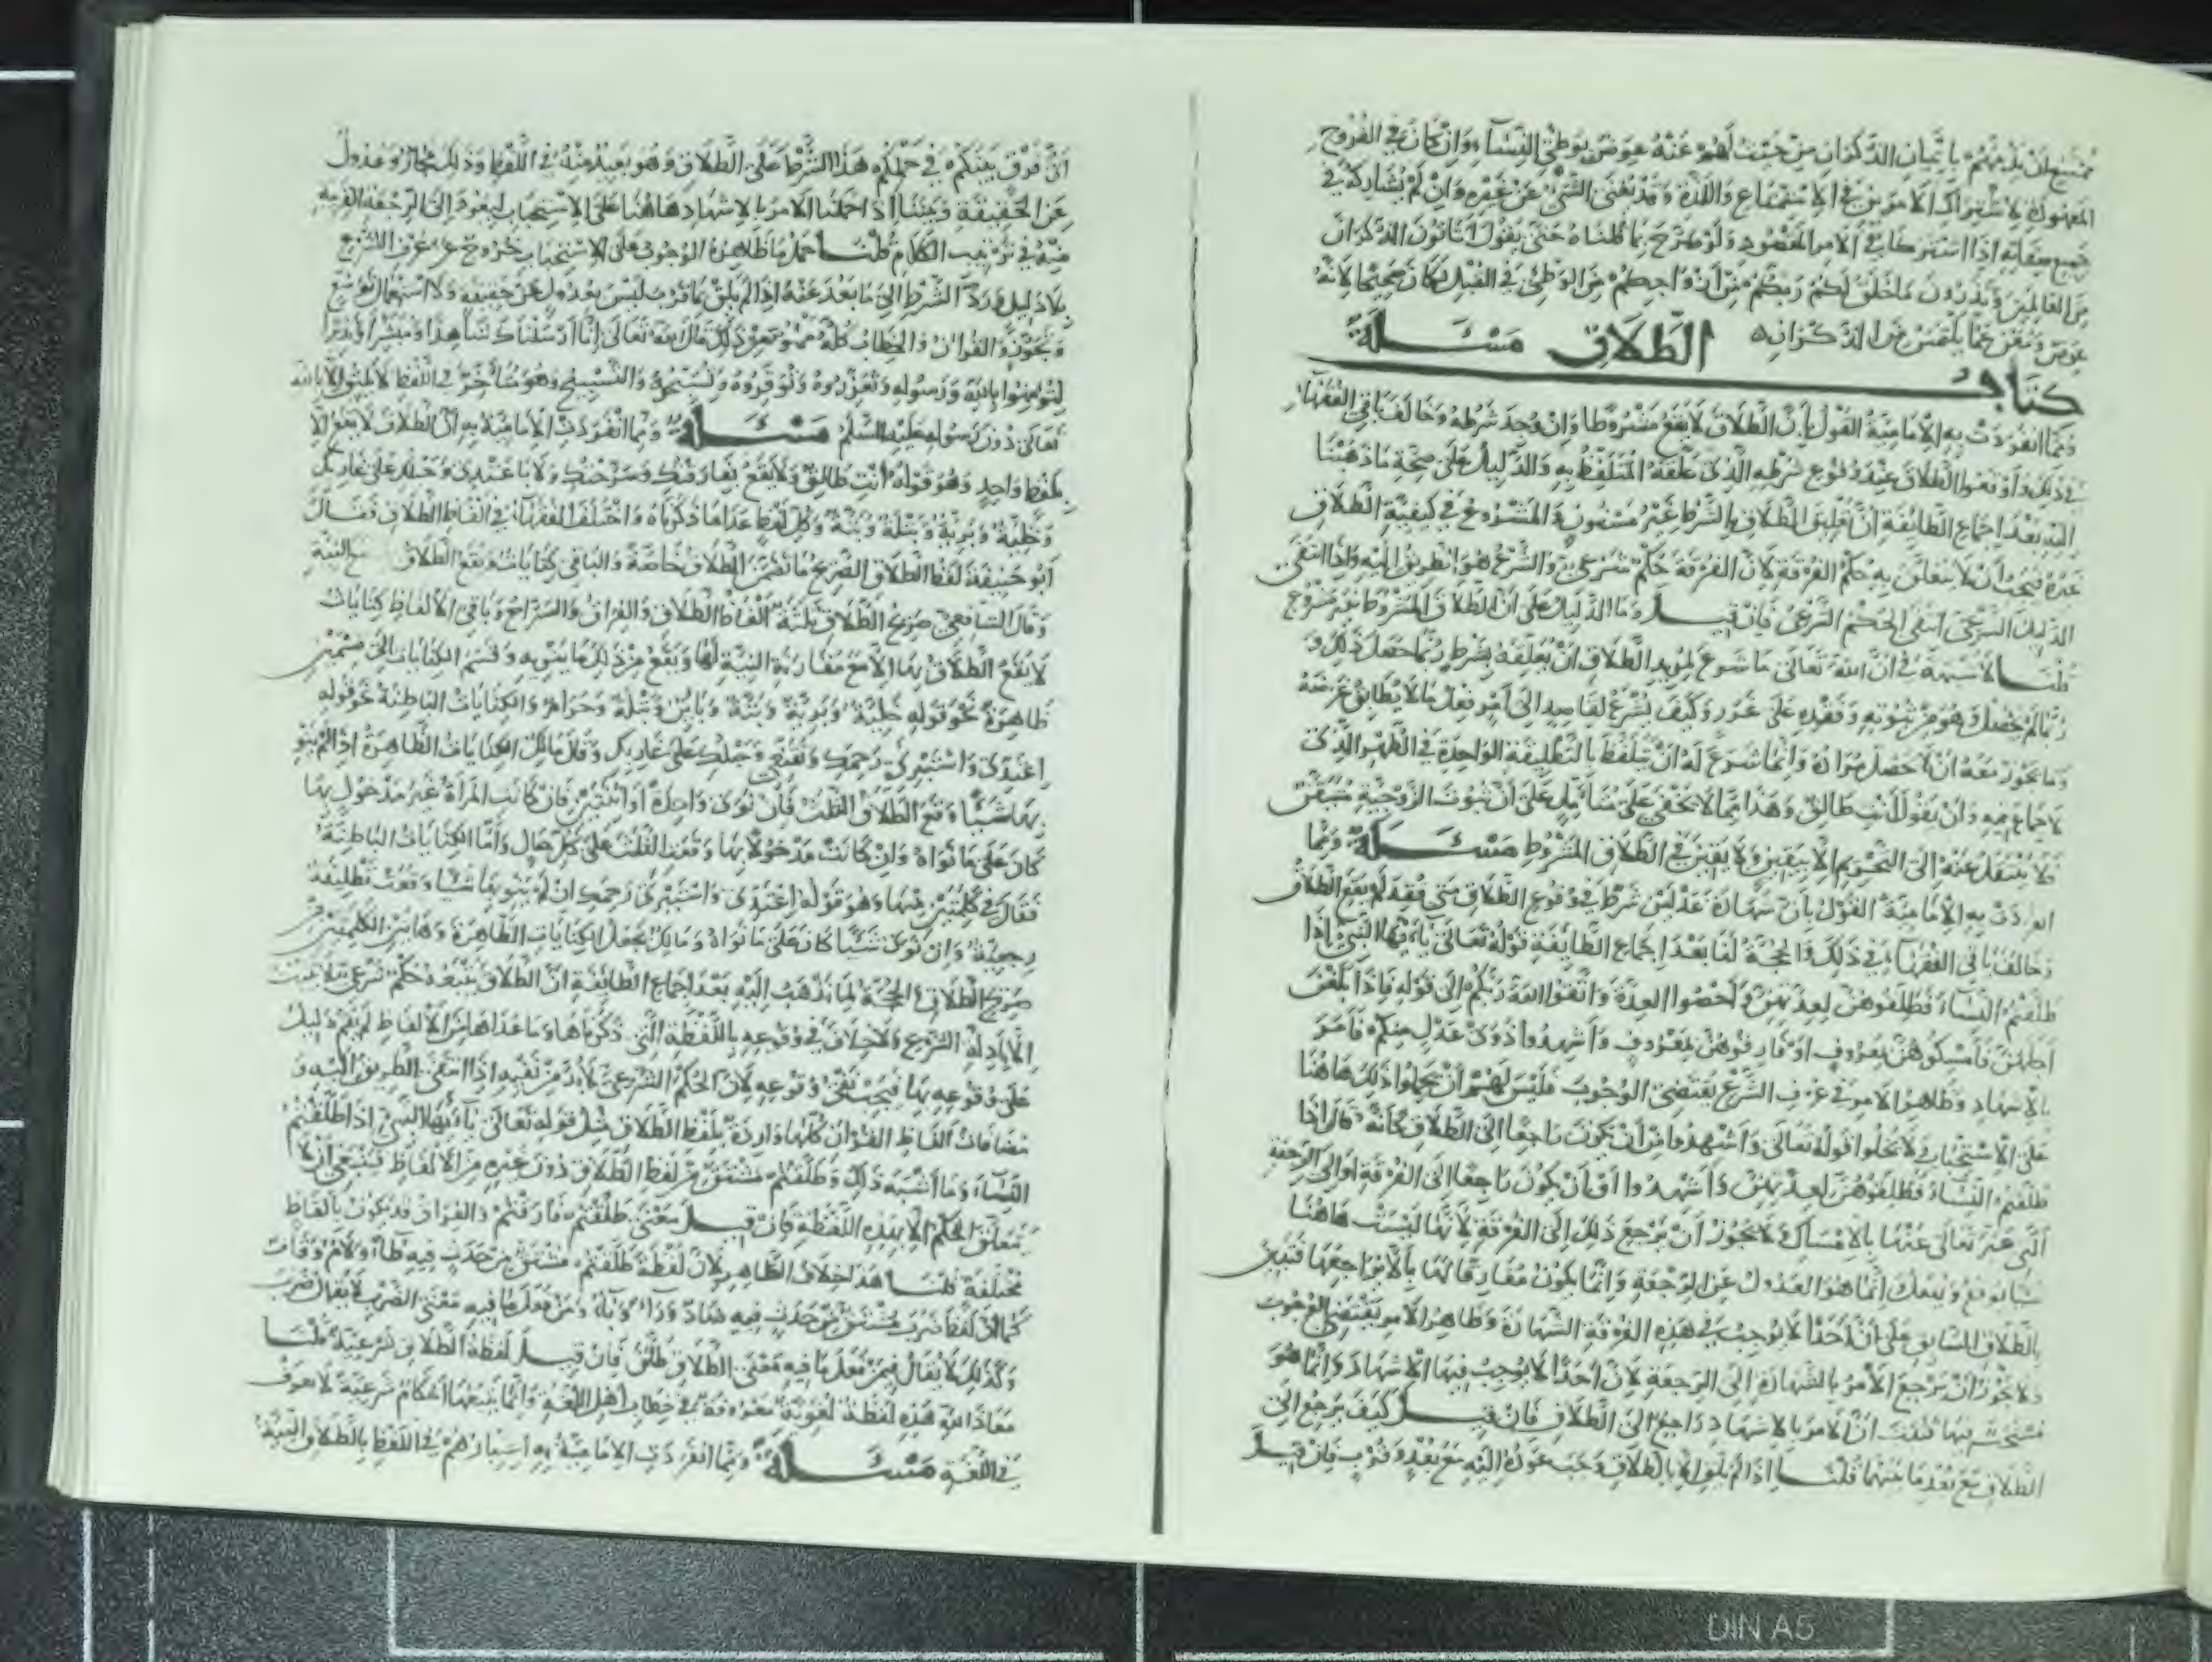 ممتنع ان يذمهم باتيان الذكران من حيث لهم عنه عوض بوطئ النساء وان كان في الفروج
المعهودة لاشتراك الامرين في الاستمتاع واللذة وقد يغني الشئ عن غيره وان لم يشاركه في
جميع صفاته اذا اشتركا في الامر المقصود ولو صرح بما قلناه حتى يقول اتاتون الذكران
من العالمين وتذرون ما خلق لكم ربكم من ازواجكم من الوطئ في القبل لكان صحيحا لانه
عوض ومغن عما يلتمس من الذكران
كتاب الطلاق مسئلة
ومما انفردت به الامامية القول بان الطلاق لا يقع مشروطا وان وجد شرطه وخالف باقي الفقهاء
في ذلك واوقعوا الطلاق عند وقوع شرطه الذي علقه المتلفظ به والدليل على صحة ما ذهبنا
اليه بعد اجماع الطائفة ان تعليق الطلاق بالشرط غير مسنون والمشروع في كيفية الطلاق
غيره فيجب ان لا يتعلق به حكم الفرقة لان الفرقة حكم شرعي والشرع هو الطريق اليه واذا انتفى
الدليل الشرعي انتفى الحكم الشرعي فان قيل وما الدليل على ان الطلاق المشروط غير مشروع
قلنا لا شبهة في ان الله تعالى ما شرع لمريد الطلاق ان يعلقه بشرط ربما حصل ذلك و
ربما لم يحصل وهو من ثبوته وفقده على غرر وكيف يشرع لقاصد الى امر فعل ما لا يطابق غرضه
وما يجوز معه ان لا يحصل مراده وانما شرع له ان يتلفظ بالتطليقة الواحدة في الطهر الذي
لا جماع فيه وان يقول انت طالق وهذا مما لا يخفى على متامل على ان ثبوت الزوجية متيقن
فلا ينتقل عنه الى التحريم الا بيقين ولا يقين في الطلاق المشروط مسئلة ومما
انفردت به الامامية القول بان شهادة عدلين شرط في وقوع الطلاق متى فقد لم يقع الطلاق
وخالف باقي الفقهاء في ذلك والحجة لنا بعد اجماع الطائفة قوله تعالى يا ايها النبي اذا
طلقتم النساء فطلقوهن لعدتهن واحصوا العدة واتقوا الله ربكم الى قوله فاذا بلغن
اجلهن فامسكوهن بمعروف او فارقوهن بمعروف واشهدوا ذوي عدل منكم فامر
بالاشهاد وظاهر الامر في عرف الشرع يقتضي الوجوب فليس لهم ان يحملوا ذلك هاهنا
على الاستحباب ولا تخلوا قوله تعالى واشهدوا من ان يكون راجعا الى الطلاق كانه قال اذا
طلقتم النساء فطلقوهن لعدتهن واشهدوا او ان يكون راجعا الى الفرقة او الى الرجعة
التي عبر تعالى عنها بالامساك ولا يجوز ان يرجع ذلك الى الفرقة لانها ليست هاهنا
شيا يوقع ويفعل انما هو العدول عن الرجعة وانما يكون مفارقا لها بالا يراجعها فتبين
بالطلاق السابق على ان احدا لا يوجب في هذه الفرقة الشهادة وظاهر الامر يقتضي الوجوب
ولا يجوز ان يرجع الامر بالشهادة الى الرجعة لان احدا لا يوجب فيها الاشهاد وانما هو
مستحب فيها فثبت ان الامر بالاشهاد راجع الى الطلاق فان قيل كيف يرجع الى
الطلاق مع بعد ما بينهما قلنا اذا لم يلق الا بالطلاق وجب عوده اليه مع بعد وقرب فان قيل
اي فرق بينكم في حملكم هذا الشرط على الطلاق وهو بعيد منه في اللفظ وذلك مجاز وعدول
عن الحقيقة وبيننا اذا حملنا الامر بالاشهاد هاهنا على الاستحباب ليعود الى الرجعة القريبة
منه في ترتيب الكلام قلنا حمل ما ظاهره الوجوب على الاستحباب خروج عن عرف الشرع
بلا دليل ورد الشرط الى ما بعد عنه اذا لم يلق بما قرب ليس بعدول عن حقيقة ولا استعمال توسع
وتجوز والقران والخطاب كله مملو من ذلك قال الله تعالى انا ارسلناك شاهدا ومبشرا ونذيرا
لتؤمنوا بالله ورسوله وتعزروه وتوقروه وتسبحوه والتسبيح وهو متاخر في اللفظ لا يليق الا بالله
تعالى دون رسوله عليه السلم مسئلة ومما انفردت الامامية به ان الطلاق لا يقع الا
بلفظ واحد وهو قوله انت طالق ولا يقع بفارقتك وسرحتك ولا باعتدي وحبلك على غاربك
وخلية وبرية وبتلة وبتة وكل لفظ عدا ما ذكرناه واختلف الفقهاء في الفاظ الطلاق فقال
ابو حنيفة لفظ الطلاق الصريح ما تضمن الطلاق خاصة والباقي كنايات ويقع الطلاق مع النية
وقال الشافعي صريح الطلاق ثلثة الفاظ الطلاق والفراق والسراح وباقي الالفاظ كنايات
لا يقع الطلاق بها الا مع مقارنة النية لها ويقع من ذلك ما ينويه وقسم الكنايات الى قسمين
ظاهرة نحو قوله خلية وبرية وبتة وباين وبتلة وحرام والكنايات الباطنة نحو قوله
اعتدي واستبرئي رحمك وتقنعي وحبلك على غاربك وقال مالك الكنايات الظاهرة اذا لم ينو
بها شيئا وقع الطلاق الثلث فان نوى واحدة او اثنتين فان كانت المراة غير مدخول بها
كان على ما نواه وان كانت مدخولا بها وقعت الثلث على كل حال واما الكنايات الباطنة
فقال في كلمتين منها وهو قوله اعتدي واستبرئي رحمك ان لم ينو بها شيئا وقعت تطليقة
رجعية وان نوى شيئا كان على ما نواه ومالك يجعل الكنايات الظاهرة وهاتين الكلمتين من
صريح الطلاق والحجة لما نذهب اليه بعد اجماع الطائفة ان الطلاق يتبعه حكم شرعي لا يثبت
الا بادلة الشرع ولا خلاف في وقوعه باللفظة التي ذكرناها وما عداها من الالفاظ لم يقم دليل
على وقوعه بها فيجب نفي وقوعه لان الحكم الشرعي لا بد من نفيه اذا انتفى الطريق اليه و
ايضا فان الفاظ القران كلها واردة بلفظ الطلاق مثل قوله تعالى يا ايها النبي اذا طلقتم
النساء وما اشبه ذلك وطلقتم مشتق من لفظ الطلاق دون غيره من الالفاظ فينبغي ان لا
يتعلق الحكم الا بهذه اللفظة فان قيل معنى طلقتم فارقتم والفراق قد يكون بالفاظ
مختلفة قلنا هذا خلاف الظاهر لان لفظة طلقتم مشتق من حدث فيه طاء ولام وقاف
كما ان لفظ ضرب مشتق من حدث فيه ضاد وراء وباء ومن فعل ما فيه معنى الضرب لا يقال ضرب
وكذلك لا يقال فيمن فعل ما فيه معنى الطلاق طلق فان قيل لفظة الطلاق شرعية قلنا
معاذ الله هذه لفظة لغوية معروفة في خطاب اهل اللغة وانما يتبعها احكام شرعية لا تعرف
في اللغة مسئلة ومما انفردت الامامية به اعتبارهم في اللفظ بالطلاق النية